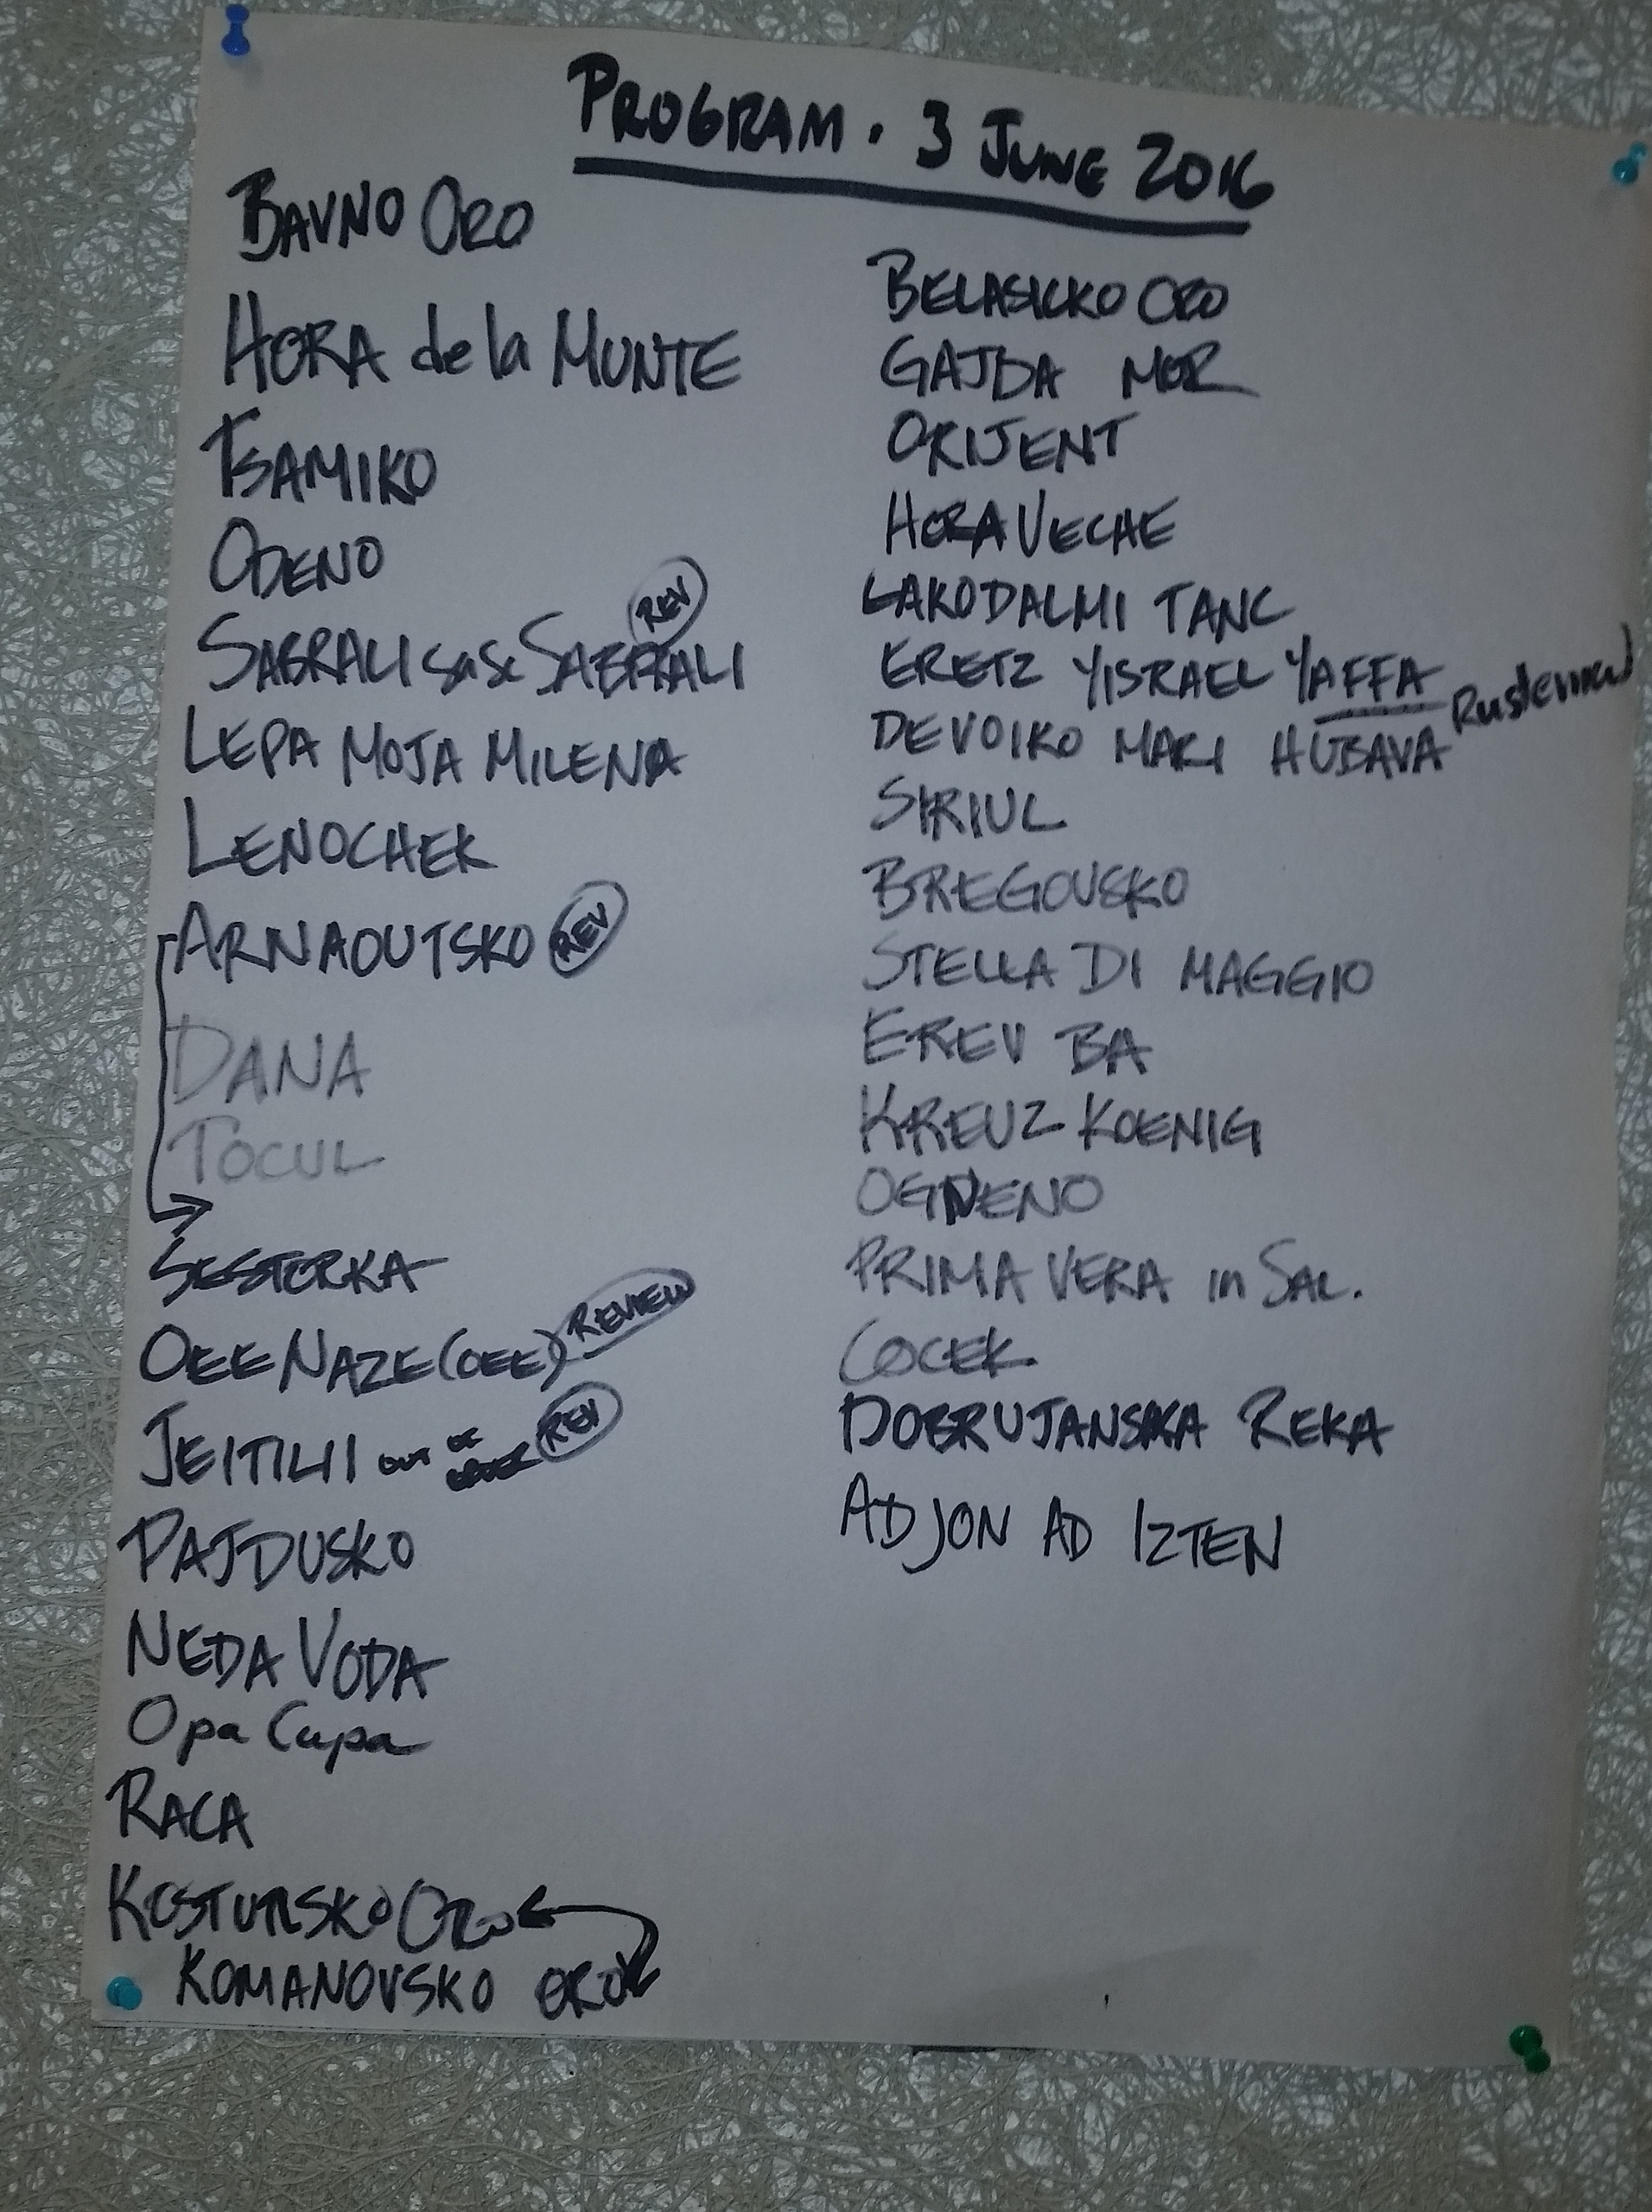 PROGRAM. 3 JUNE 2016
BAVNO ORO
HORA de la MUNTE
TSAMIKO
ODENO
REV
SABRALI sa se SABRALI
LEPA MOJA MILENA
LENOCHEK
ARNAOUTSKO REV
DANA
TOCUL
SESTORKA
OEE NAZE (OEE) REVIEW
JEITILII OUT OF ORDER REV
PAJDUSKO
NEDA VODA
Opa Cupa
RACA
KOSTURSKO ORO
KOMANOVSKO ORO
BELASICKO ORO
GAJDA MOR
ORIJENT
HORA VECHE
LAKODALMI TANC
ERETZ YISRAEL YAFFA
DEVOIKO MARI HUBAVA
SIRIUL
BREGOVSKO
STELLA DI MAGGIO
EREV BA
KREUZ KOENIG
OGNENO
PRIMA VERA in SAL.
COCEK
DOBRUJANSKA REKA
AD JON AD IZTEN